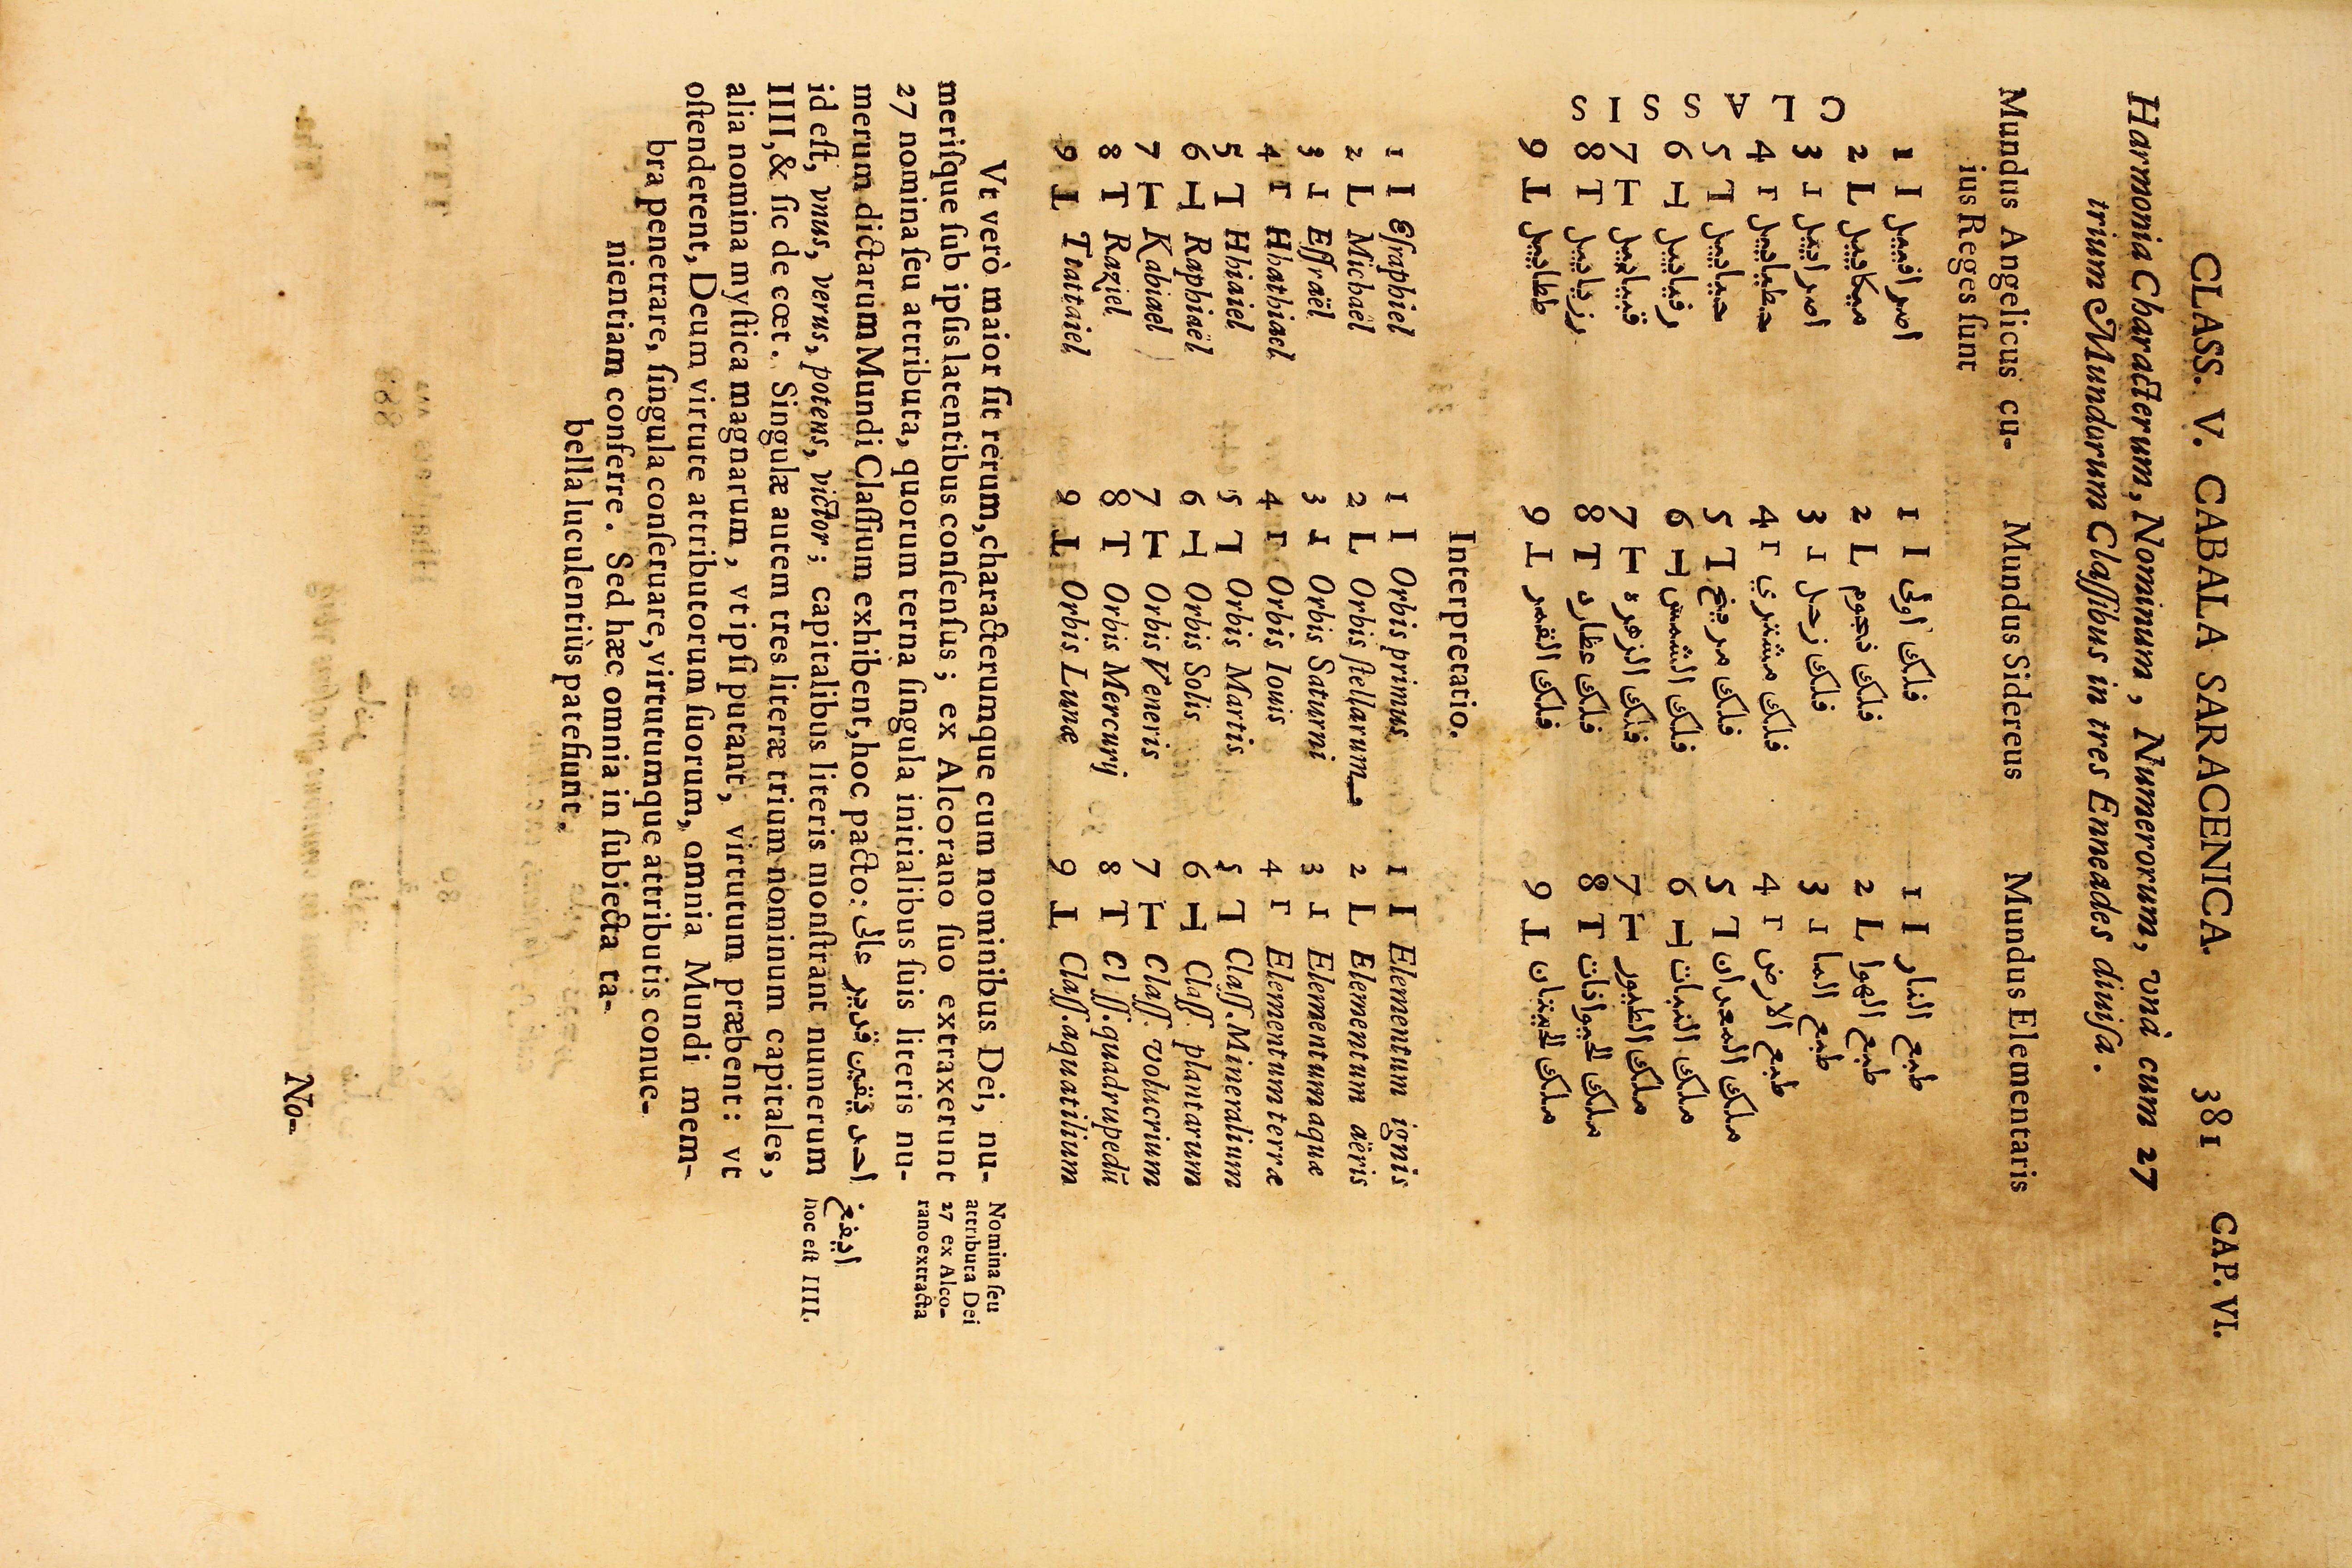 CLASS. V. CABALA SARACENICA. 381 CAP. VI.
Harmonia Characterum, Nominum, Numerorum, vnà cum 27
trium Mundorum Classibus in tres Enneades diuisa.
Mundus Angelicus cu-
ius Reges sunt
Mundus Sidereus
Mundus Elementaris
CLASSIS
1 I اصرافييل
2 L ميكاييل
3 ɹ اصراييل
4 r حطياييل
5 ꓶ حياييل
6 H رفياييل
7 Ⱶ قبياييل
8 T رزياييل
9 ⊥ططاييل
1 I فلك اولى
2 L فلك نجوم
3 ɹ فلك زحل
4 r فلك مشتري
5 ꓶ فلك مريخ
6 H فلك الشمس
7 Ⱶ فلك الزهره
8 T فلك عطارد
9 ⊥ فلك القمر
1 I طبع النار
2 L طبع الهوا
3 ɹ طبع الما
4 r طبع الارض
5 ꓶ ملك المعدان
6 H ملك النبات
7 Ⱶ ملك الطيور
8 T ملك الحيوانات
9 ⊥ ملك الحيتان
Interpretatio.
1 I Esraphiel
2 L Michaël
3 ɹ Essraël
4 r Hhathiael
5 ꓶ Hhiaiel
6 H Raphiaël
7 Ⱶ Kabiael
8 T Raziel
9 ⊥ Tiattaiel
1 I Orbis primus
2 L Orbis stellarum
3 ɹ Orbis Saturni
4 r Orbis Iouis
5 ꓶ Orbis Martis
6 H Orbis Solis
7 Ⱶ Orbis Veneris
8 T Orbis Mercurij
9 ⊥ Orbis Lunæ
1 I Elementum ignis
2 L Elementum aëris
3 ɹ Elementum aquæ
4 r Elementum terræ
5 ꓶ Class. Mineralium
6 H Class. plantarum
7 Ⱶ Class. volucrium
8 T Cl ss. quadrupedū
9 ⊥ Class. aquatilium
Vt verò maior sit rerum, characterumque cum nominibus Dei, nu-
merisque sub ipsis latentibus consensus; ex Alcorano suo extraxerunt
27 nomina seu attributa, quorum terna singula initialibus suis literis nu-
merum dictarum Mundi Classium exhibent, hoc pacto: احد يقين قدير عالى
id est, vnus, verus, potens, victor; capitalibus literis monstrant numerum
IIII, & sic de cœt. Singulæ autem tres literæ trium nominum capitales,
alia nomina mystica magnarum, vt ipsi putant, virtutum præbent: vt
ostenderent, Deum virtute attributorum suorum, omnia Mundi mem-
bra penetrare, singula conseruare, virtutumque attributis conue-
nientiam conferre. Sed hæc omnia in subiecta ta-
bella luculentiùs patefiunt.
Nomina seu
attributa Dei
27 ex Alco-
rano extracta
ايقغ
hoc est IIII.
No-